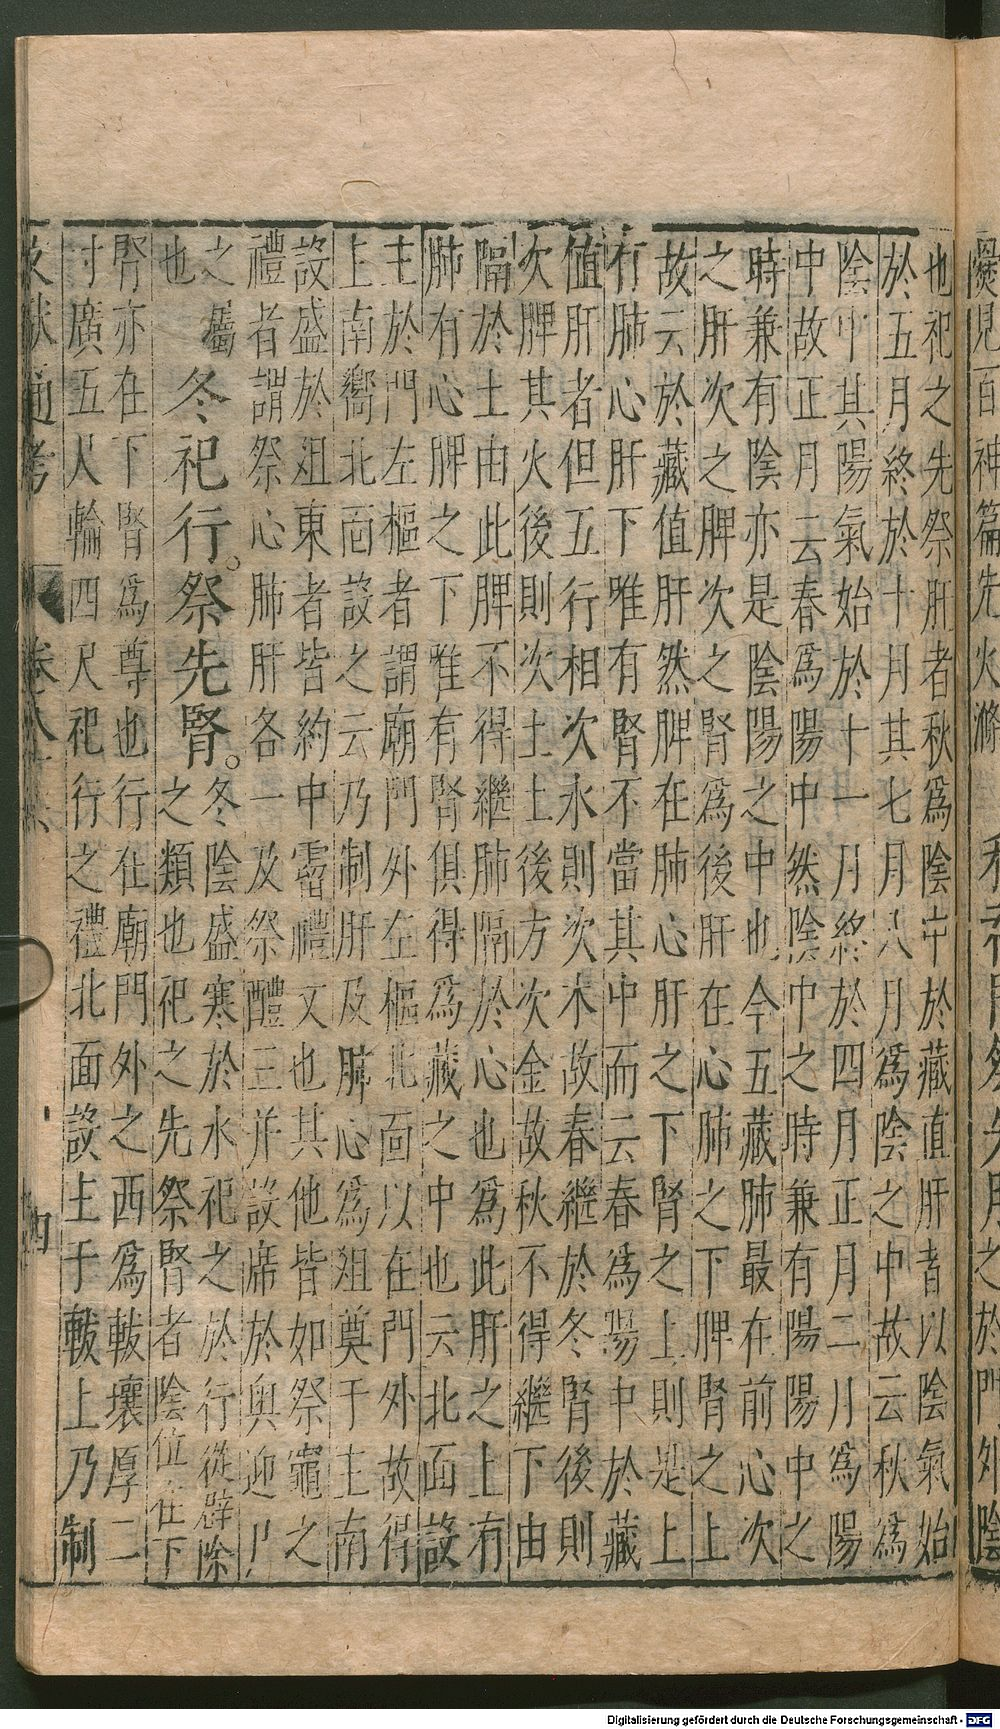 也祀之先祭肝者秋爲陰中於藏直肝者以陰氣始
於五月終於十月其七月八月爲陰之中故云秋爲
陰中其陽氣始於十一月終於四月正月二月爲陽
中故正月云春爲陽中然陰中之時兼有陽陽中之
時兼有陰亦是陰陽之中也今五藏肺最在前心次
之肝次之脾次之腎爲後肝在心肺之下脾腎之上
故云於藏值肝然脾在肺心肝之下腎之上則是上
有肺心肝下唯有腎不當其中而云春爲陽中於藏
值肝者但五行相次水則次木故春繼於冬腎後則
次脾其火後則次土土後方次金故秋不得繼下由
隔於土由此脾不得繼肺隔於心也爲此肝之上有
肺有心脾之下唯有腎俱得爲藏之中也云北面設
主於門左樞者謂廟門外左樞北面以在門外故得
上南嚮北面設之云乃制肝及肺心爲俎奠于主南
設盛於俎東者皆約中霤禮文也其他皆如祭竈之
禮者謂祭心肺肝各一及祭醴三并設席於奧迎尸
之屬
也
冬祀行。祭先腎。
冬陰盛寒於水祀之於行從辟除
之類也祀之先祭腎者陰位在下
腎亦在下腎爲尊也行在廟門外之西爲軷壤厚二
寸廣五尺輪四尺祀行之禮北面設主于軷上乃制
文獻通考
卷八十六
四
Digitalisierung gefördert durch die Deutsche Forschungsgemeinschaft - DFG